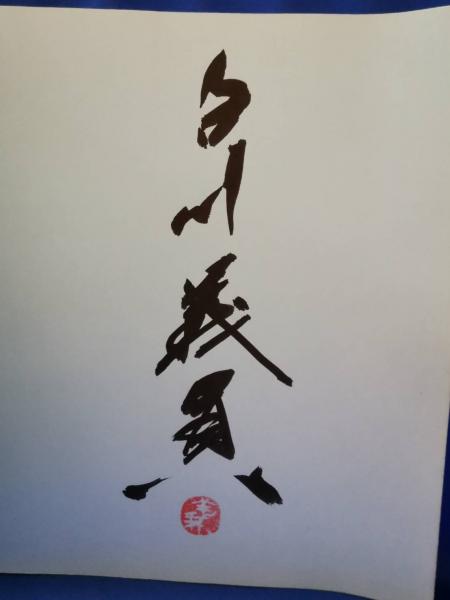 白川義員